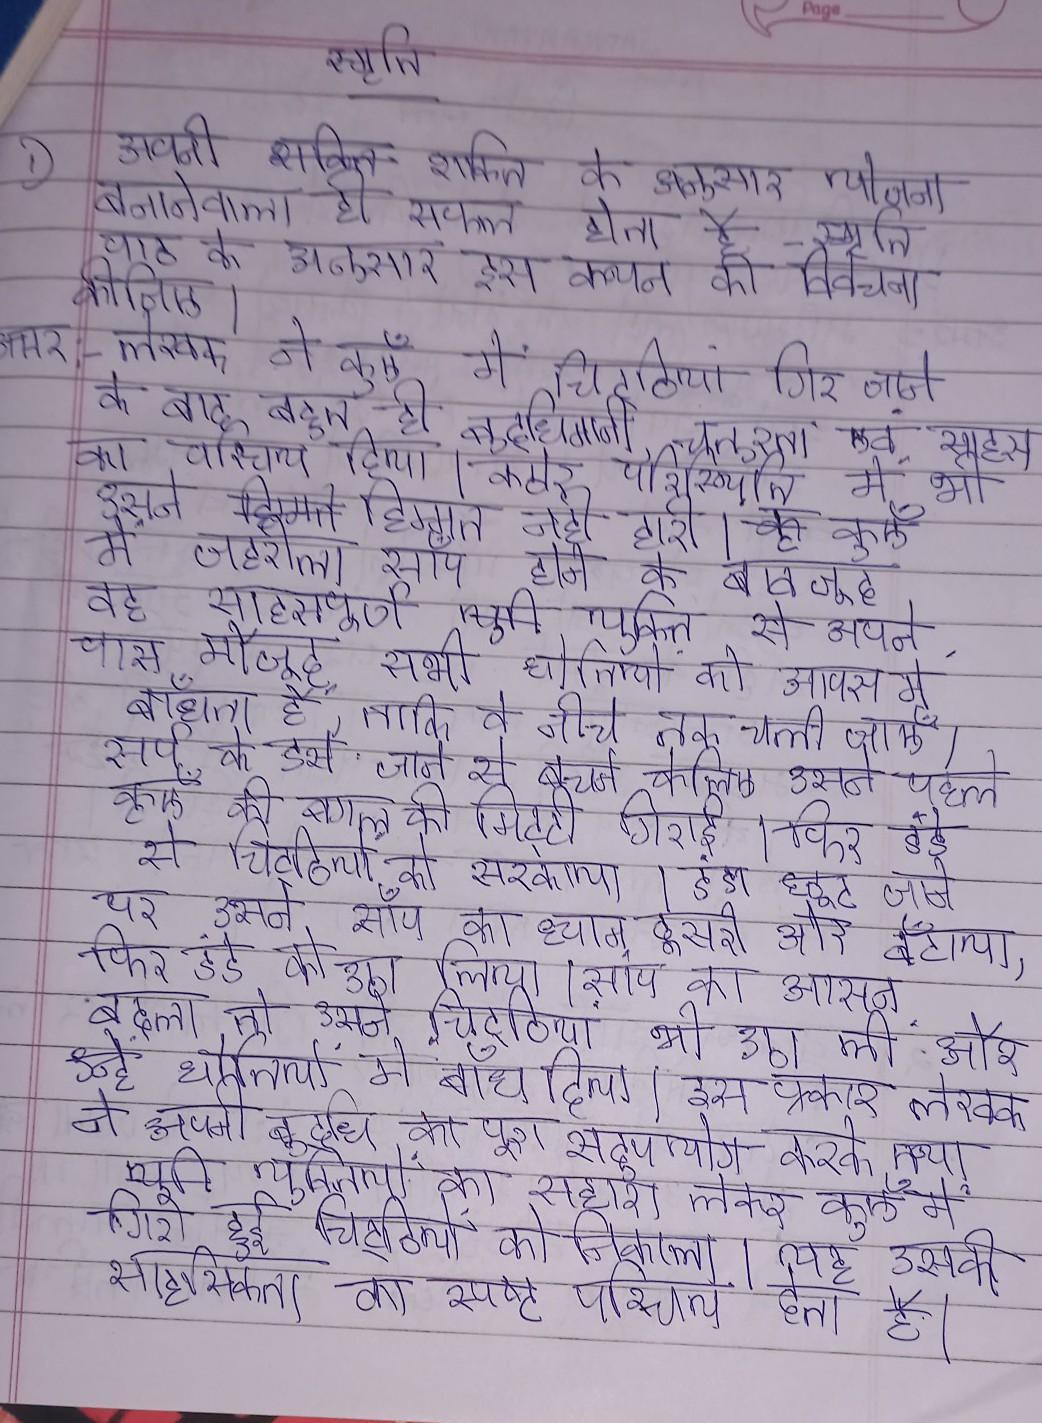 Page
स्मृति
1) अपनी शक्ति के अनुसार योजना
बनानेवाला ही सफल होता है - स्मृति
पाठ के अनुसार इस कथन की विवेचना
कीजिए।
उत्तर:- लेखक ने कुएँ में चिट्ठियां गिर जाने
के बाद बहुत ही बुद्धिमानी, चतुरता एवं साहस
का परिचय दिया। कठोर परिस्थिति में भी
उसने हिम्मत नही हारी। कुएँ
में जहरीला साँप होने के बावजूद
वह साहसपूर्ण युक्ति से अपने
पास मौजूद सभी धोतियों को आपस में
बाँधता है, ताकि वे नीचे तक चली जाएँ।
सर्प के डसे जाने से बचने केलिए उसने पहले
कुएँ की बगल की मिट्टी गिराई। फिर डंडे
से चिट्ठियों को सरकाया। डंडा छूट जाने
पर उसने साँप का ध्यान दूसरी ओर बँटाया,
फिर डंडे को उठा लिया। साँप का आसन
बदला तो उसने चिट्ठियां भी उठा ली और
उन्हे धोतियों में बाँध दिया। इस प्रकार लेखक
ने अपनी बुद्धि का पूरा सदुपयोग करके तथा
युक्तियों का सहारा लेकर कुएँ में
गिरी हुई चिट्ठियों को निकाला। यह उसकी
साहसिकता का स्पष्ट परिचय देता है।